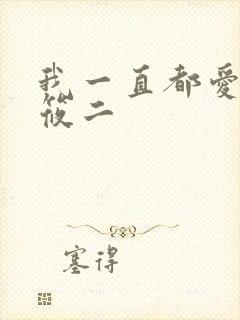 我一直都愛
筱二
塞得